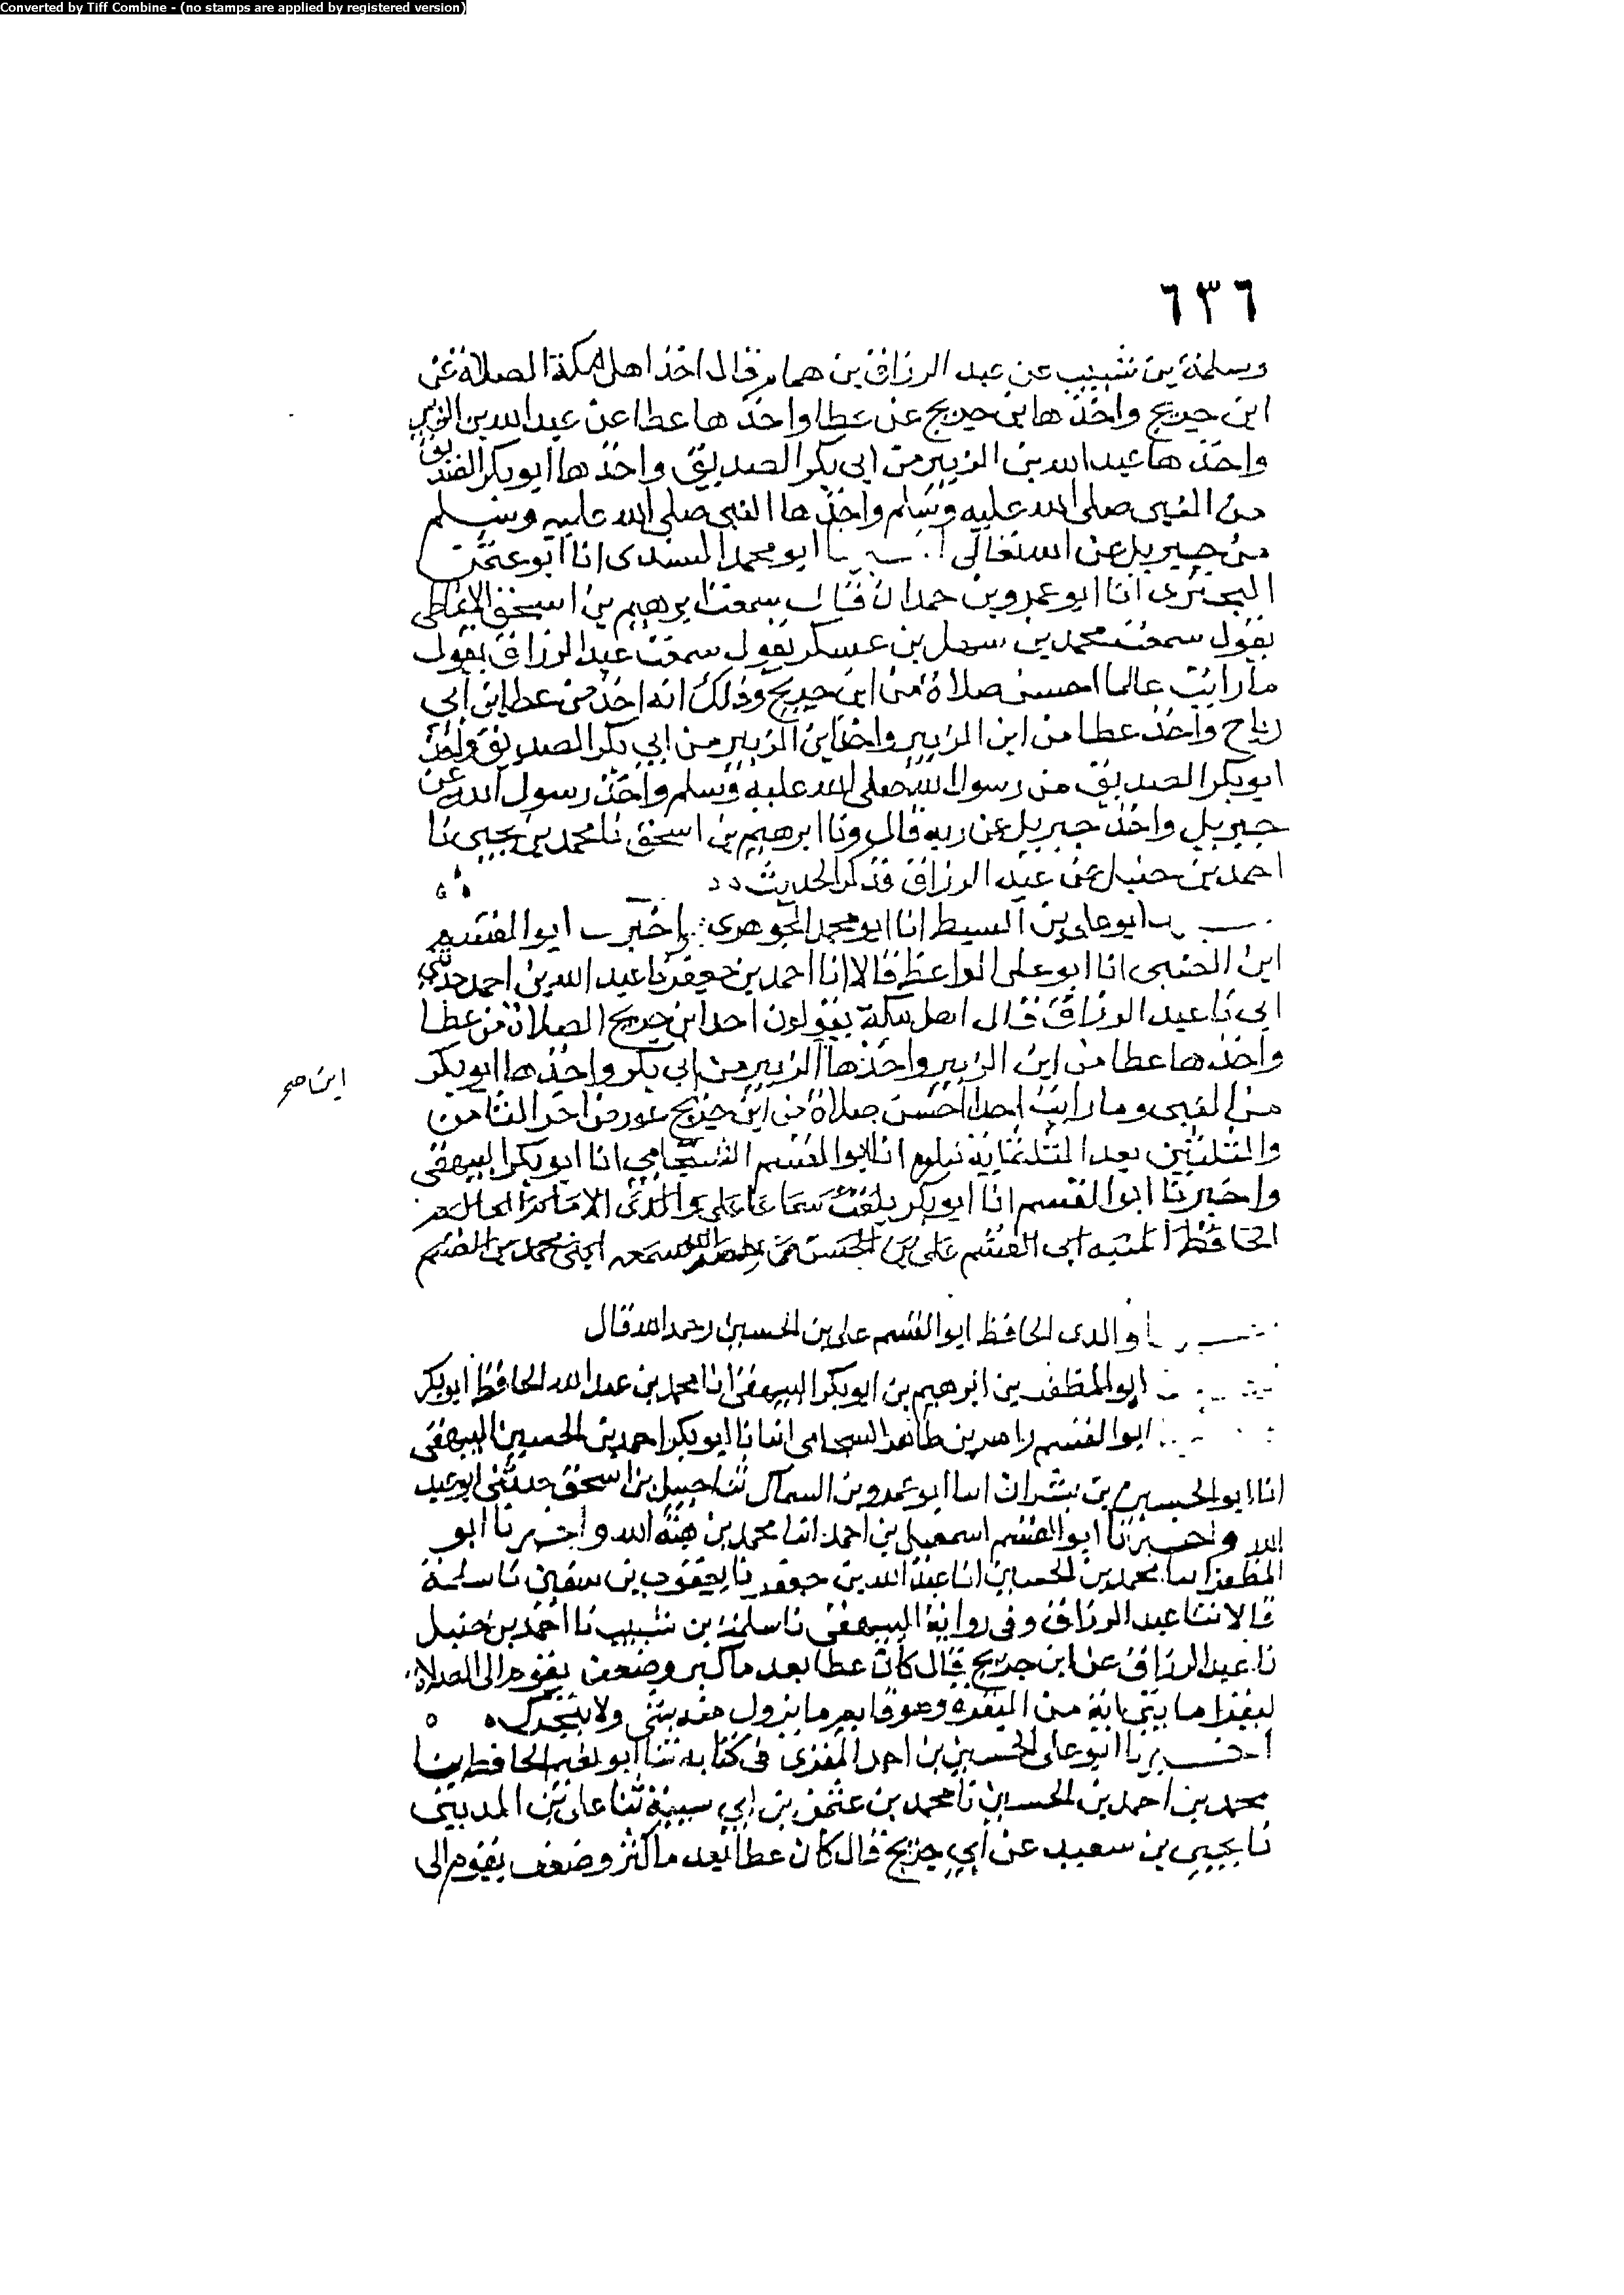 Converted by Tiff Combine - (no stamps are applied by registered version)
٦٣٦
وسلمة بن شبيب عن عبد الرزاق بن همام قال اخذ اهل مكة الصلاة عن
ابن جريج واخذها بن جريج عن عطا واخذها عطا عن عبد الله بن الزبير
واخذها عبد الله بن الزبير من ابي بكر الصديق واخذها ابو بكر الصديق
من النبي صلى الله عليه وسلم واخذها النبي صلى الله عليه وسلم
من جبريل عن الله تعالى ابو محمد السندى انا ابو عثمن
البحترى انا ابو عمرو بن حمدان قال سمعت ابرهيم بن اسحق الانماطى
يقول سمعت محمد بن سهل بن عسكر يقول سمعت عبد الرزاق يقول
ما رايت عالما احسن صلاة من ابن جريج وذلك انه اخذ من عطا بن ابي
رباح واخذ عطا من ابن الزبير واخذ ابن الزبير من ابي بكر الصديق واخذ
ابو بكر الصديق من رسول الله صلى الله عليه وسلم واخذ رسول الله عن
جبريل واخذ جبريل عن ربه قال ونا ابرهيم بن اسحق نا محمد بن يحيى نا
احمد بن حنبل عن عبد الرزاق فذكر الحديث
ابو على بن السبط انا ابو محمد الجوهرى واخبرنا ابو القسم
ابن الحصين انا ابو على الواعظ قالا انا احمد بن جعفر نا عبد الله بن احمد حدثني
ابي نا عبد الرزاق قال اهل مكة يقولون اخذ ابن جريج الصلاة من عطا
واخذها عطا من ابن الزبير واخذها الزبير من ابي بكر واخذها ابو بكر
ابن صح
من النبي وما رايت احدا احسن صلاة من ابن جريج اخر الثامن
والثلثين بعد الثلثماية انا ابو القسم الشحامي انا ابو بكر البيهقى
واخبرنا ابو القسم انا ابو بكر بلغت سماعا على والدى الامام
الحافظ ابى القسم على بن الحسن ابنى محمد بن القسم
والدى الحافظ ابو القسم على بن الحسين رحمه الله قال
ابو المظفر بن ابرهيم بن ابو بكر البيهقى انا محمد بن عبد الله الحافظ ابو بكر
ابو القسم زاهر بن طاهر السحامى انبانا ابو بكر احمد بن الحسين البيهقى
انا ابو الحسين بن بشران انا ابو عمرو بن السماك ثنا حنبل بن اسحق حدثنى ابو عبد
الله واخبرنا ابو القسم اسمعيل بن احمد انا محمد بن هبة الله واخبرنا ابو
المظفر انا محمد بن الحسين انا عبد الله بن جعفر نا يعقوب بن سفين نا سلمة
قالا ثنا عبد الرزاق وفى رواية البيهقى نا سلمة بن شبيب نا احمد بن حنبل
نا عبد الرزاق عن ابن جريج قال كان عطا بعد ما كبر وضعف يقوم الى الصلاة
ليقرا مايتي اية من البقرة وهو قايم ما يزول منه شي ولا يتحرك
اخبرنا ابو على الحسين بن احمد المقرى فى كتابه ثنا ابو نعيم الحافظ ثنا
محمد بن احمد بن الحسين نا محمد بن عثمن بن ابي سيبة ثنا على بن المديني
نا يحيي بن سعيد عن ابي جريج قال كان عطا بعد ما كثر وضعف يقوم الى